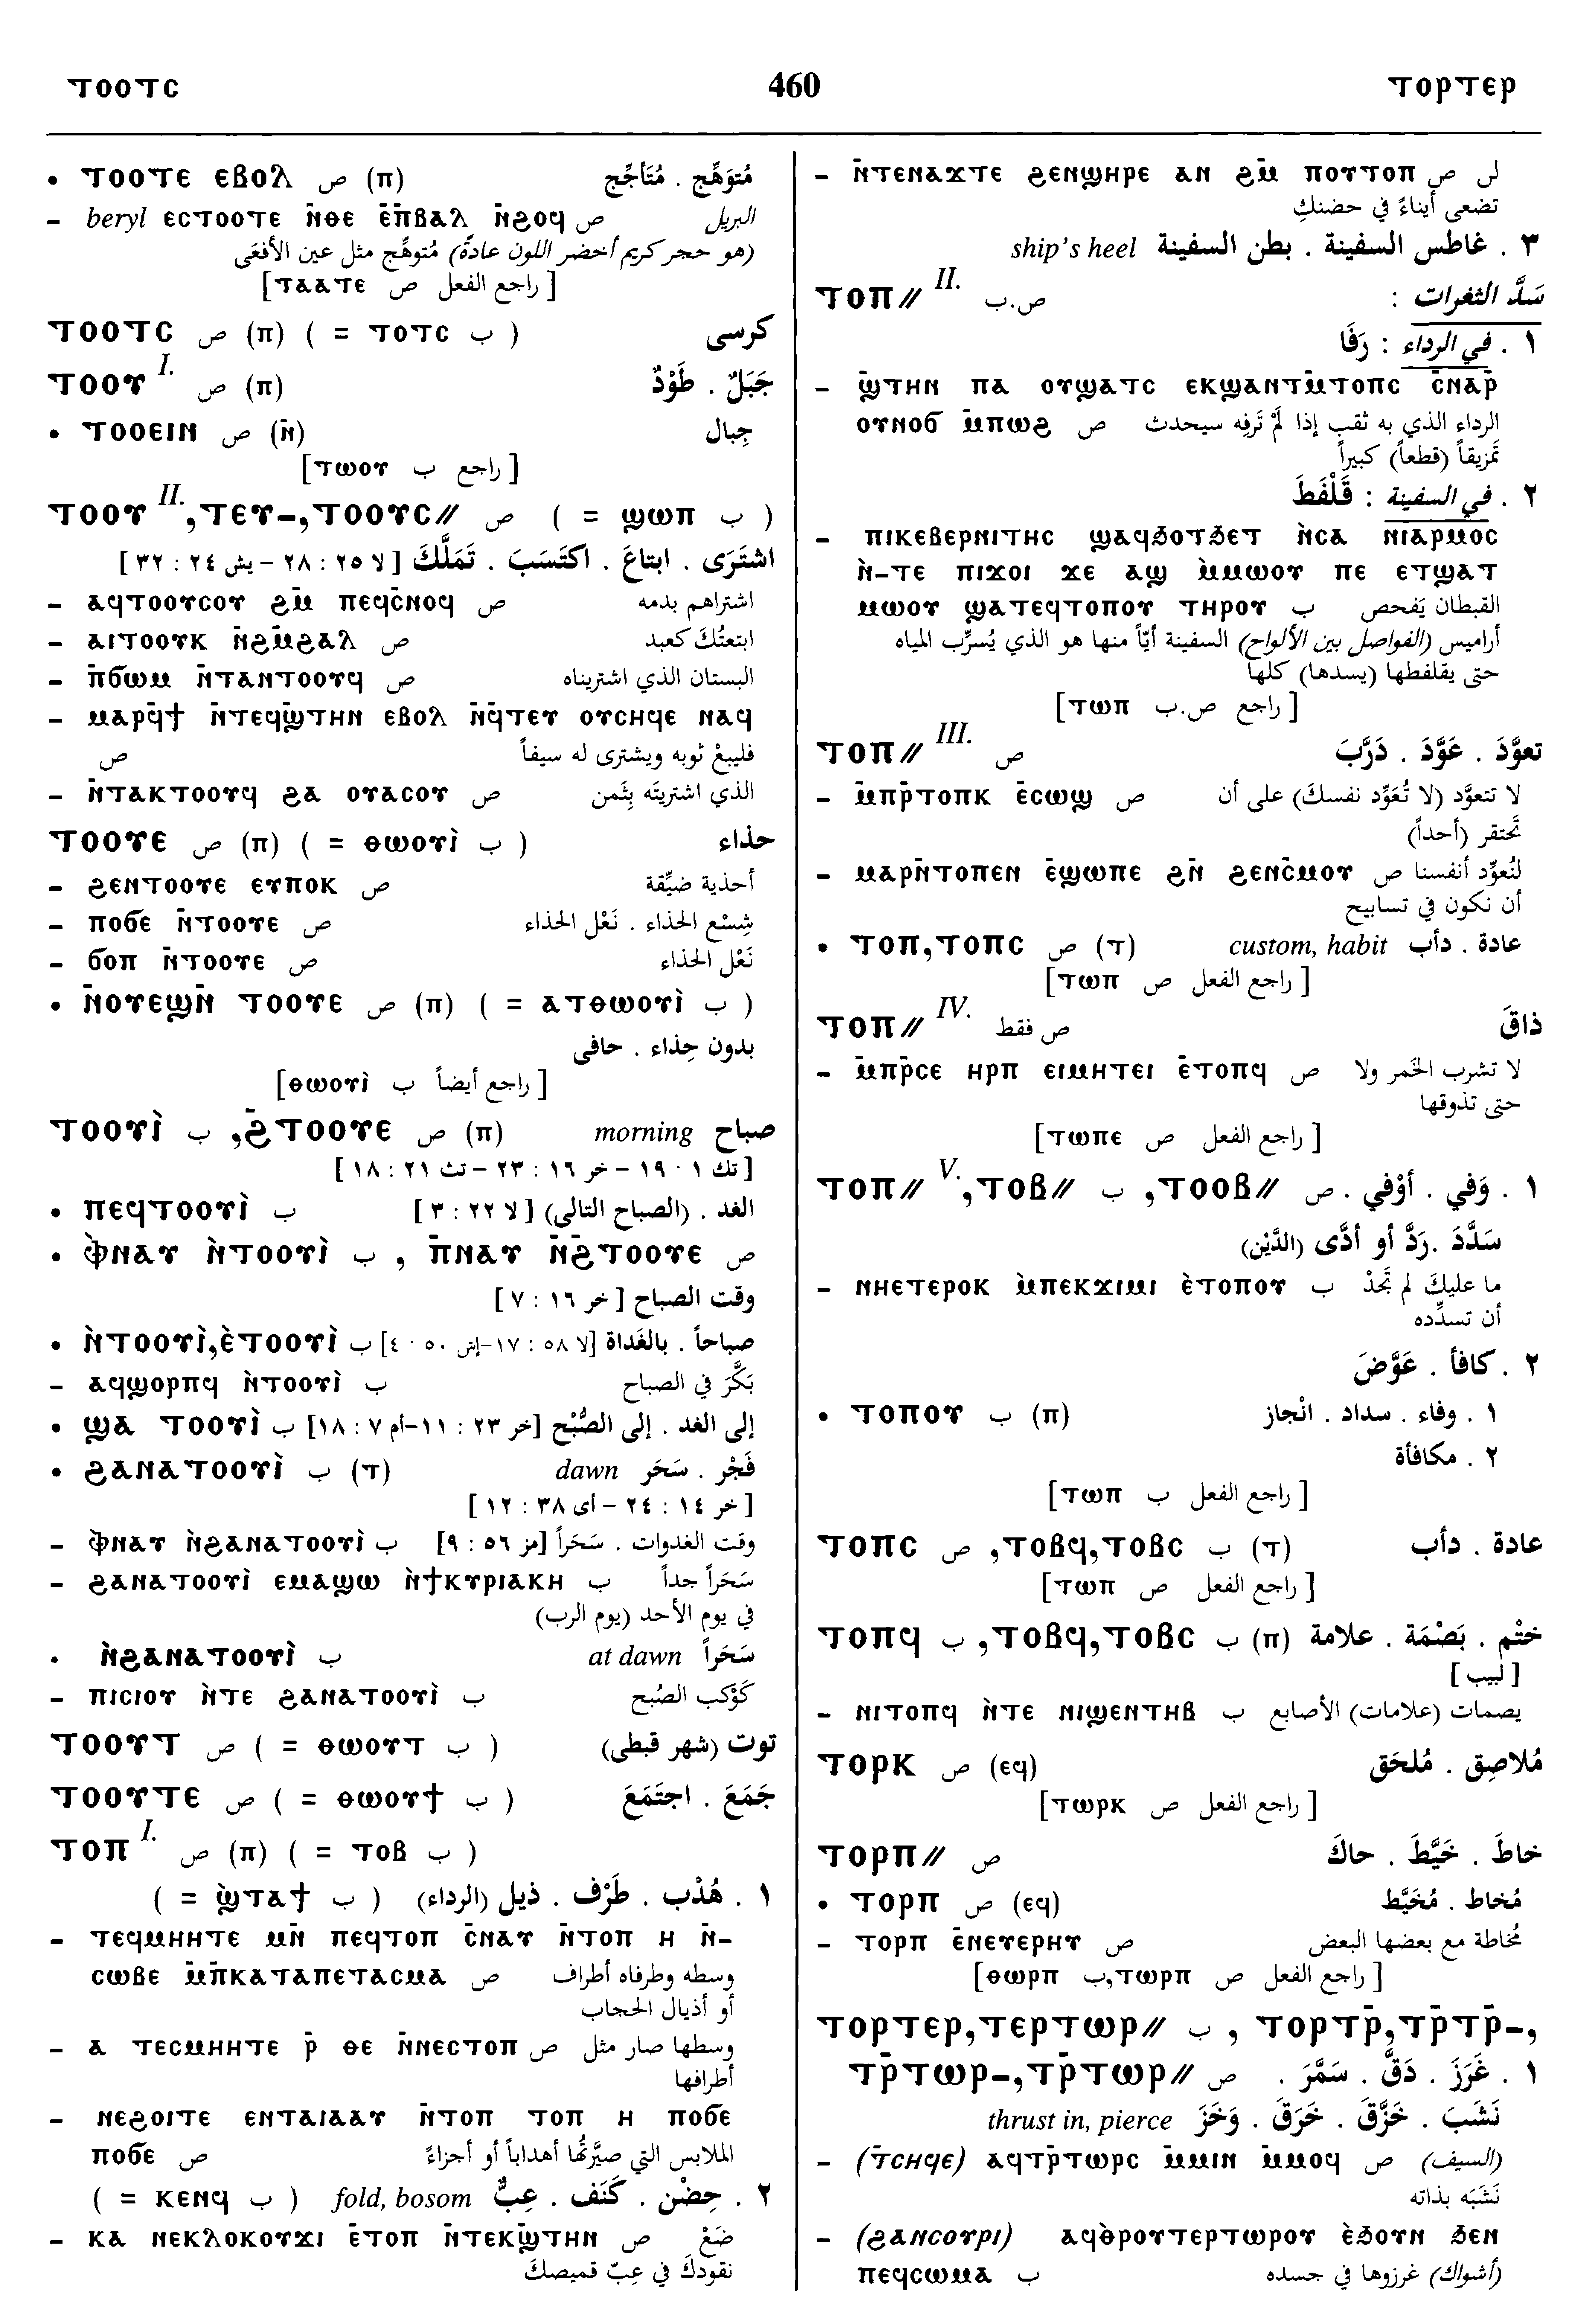 ⲧⲟⲟⲧⲥ 460 ⲧⲟⲣⲧⲉⲣ
• ⲧⲟⲟⲧⲉ ⲉⲃⲟⲗ ص (ⲡ) مُتوَهِّج . مُتَأجِّج
– beryl ⲉⲥⲧⲟⲟⲧⲉ ⲛ̄ⲑⲉ ⲉ̄ⲡ̄ⲃⲁⲗ ⲛ̄ϩⲟϥ ص البريل
(هو حجر كريم أخضر اللون عادةً) مُتوهِّج مثل عين الأفعَى
[ راجع الفعل ص ⲧⲁⲁⲧⲉ ]
ⲧⲟⲟⲧⲥ ص (ⲡ) ( = ⲧⲟⲧⲥ ب ) كرسى
ⲧⲟⲟⲩ I. ص (ⲡ) جَبَلٌ . طَوْدٌ
• ⲧⲟⲟⲉⲓⲛ ص (ⲛ̄) جِبال
[ راجع ب ⲧⲱⲟⲩ ]
ⲧⲟⲟⲩ II. ,ⲧⲉⲩ–,ⲧⲟⲟⲩⲥ// ص ( = ϣⲱⲡ ب )
اشتَرَى . ابتاعَ . اكتَسَبَ . تَمَلَّكَ [ لا ٢٥ : ٢٨ – يش ٢٤ : ٣٢ ]
– ⲁϥⲧⲟⲟⲩⲥⲟⲩ ϩⲙ̄ ⲡⲉϥⲥ̄ⲛⲟϥ ص اشتراهم بدمه
– ⲁⲓⲧⲟⲟⲩⲕ ⲛ̄ϩⲙ̄ϩⲁⲗ ص ابتعتُكَ كعبد
– ⲡ̄ϭⲱⲙ ⲛ̄ⲧⲁⲛⲧⲟⲟⲩϥ ص البستان الذي اشتريناه
– ⲙⲁⲣϥ̄ϯ ⲛ̄ⲧⲉϥϣ̄ⲧⲏⲛ ⲉⲃⲟⲗ ⲛϥ̄ⲧⲉⲩ ⲟⲩⲥⲏϥⲉ ⲛⲁϥ
ص فليبعْ ثوبه ويشترى له سيفاً
– ⲛ̄ⲧⲁⲕⲧⲟⲟⲩϥ ϩⲁ ⲟⲩⲁⲥⲟⲩ ص الذي اشتريتَه بِثَمن
ⲧⲟⲟⲩⲉ ص (ⲡ) ( = ⲑⲱⲟⲩⲓ̀ ب ) حذاء
– ϩⲉⲛⲧⲟⲟⲩⲉ ⲉⲩⲡⲟⲕ ص أحذية ضيِّقة
– ⲡⲟϭⲉ ⲛ̄ⲧⲟⲟⲩⲉ ص شِسْع الحذاء . نَعْل الحذاء
– ϭⲟⲡ ⲛ̄ⲧⲟⲟⲩⲉ ص نَعْل الحذاء
• ⲛ̄ⲟⲩⲉϣⲛ̄ ⲧⲟⲟⲩⲉ ص (ⲡ) ( = ⲁⲧⲑⲱⲟⲩⲓ̀ ب )
بدون حِذاء . حافى
[ راجع أيضاً ب ⲑⲱⲟⲩⲓ̀ ]
ⲧⲟⲟⲩⲓ̀ ب ,ϩ̄ⲧⲟⲟⲩⲉ ص (ⲡ) morning صباح
[ تك ١٩٠١ – خر ١٦ : ٢٣ – تث ٢١ : ١٨ ]
• ⲡⲉϥⲧⲟⲟⲩⲓ̀ ب الغد . (الصباح التالى) [ لا ٢٢ : ٣ ]
• ⲫ̀ⲛⲁⲩ ⲛ̀ⲧⲟⲟⲩⲓ̀ ب , ⲡ̄ⲛⲁⲩ ⲛ̄ϩ̄ⲧⲟⲟⲩⲉ ص
وقت الصباح [ خر ١٦ : ٧ ]
• ⲛ̀ⲧⲟⲟⲩⲓ̀,ⲉ̀ⲧⲟⲟⲩⲓ̀ ب صباحاً . بالغَداة [لا ٥٨ : ١٧–إش ٥٠ ٠ ٤]
– ⲁϥϣⲟⲣⲡϥ ⲛ̀ⲧⲟⲟⲩⲓ̀ ب بَكَّرَ في الصباح
• ϣⲁ ⲧⲟⲟⲩⲓ̀ ب إلى الغد . إلى الصُّبْح [خر ٢٣ : ١١–أم ٧ : ١٨]
• ϩⲁⲛⲁⲧⲟⲟⲩⲓ̀ ب (ⲧ) dawn فَجْر . سَحَر
[ خر ١٤ : ٢٤ – أى ٣٨ : ١٢ ]
– ⲫ̀ⲛⲁⲩ ⲛ̀ϩⲁⲛⲁⲧⲟⲟⲩⲓ̀ ب وقت الغدوات . سَحَراً [مز ٥٦ : ٩]
– ϩⲁⲛⲁⲧⲟⲟⲩⲓ̀ ⲉⲙⲁϣⲱ ⲛ̀ϯⲕⲩⲣⲓⲁⲕⲏ ب سَحَراً جداً
في يوم الأحد (يوم الرب)
• ⲛ̀ϩⲁⲛⲁⲧⲟⲟⲩⲓ̀ ب at dawn سَحَراً
– ⲡⲓⲥⲓⲟⲩ ⲛ̀ⲧⲉ ϩⲁⲛⲁⲧⲟⲟⲩⲓ̀ ب كَوْكب الصُبح
ⲧⲟⲟⲩⲧ ص ( = ⲑⲱⲟⲩⲧ ب ) توت (شهر قبطى)
ⲧⲟⲟⲩⲧⲉ ص ( = ⲑⲱⲟⲩϯ ب ) جَمَعَ . اجتَمَعَ
ⲧⲟⲡ I. ص (ⲡ) ( = ⲧⲟⲃ ب )
١ . هُدْب . طَرْف . ذيل (الرداء) ( = ϣ̀ⲧⲁϯ ب )
– ⲧⲉϥⲙⲏⲏⲧⲉ ⲙⲛ̄ ⲡⲉϥⲧⲟⲡ ⲥ̄ⲛⲁⲩ ⲛ̄ⲧⲟⲡ ⲏ ⲛ̄–
ⲥⲱⲃⲉ ⲙ̄ⲡ̄ⲕⲁⲧⲁⲡⲉⲧⲁⲥⲙⲁ ص وسطه وطرفاه أطراف
أو أذيال الحجاب
– ⲁ ⲧⲉⲥⲙⲏⲏⲧⲉ ⲣ̄ ⲑⲉ ⲛ̄ⲛⲉⲥⲧⲟⲡ ص وسطها صار مثل
أطرافها
– ⲛⲉϩⲟⲓⲧⲉ ⲉⲛⲧⲁⲓⲁⲁⲩ ⲛ̄ⲧⲟⲡ ⲧⲟⲡ ⲏ ⲡⲟϭⲉ
ⲡⲟϭⲉ ص الملابس التي صيَّرتُها أهداباً أو أجزاءً
٢ . حِضْن . كَنَف . عِبٌّ fold, bosom ( = ⲕⲉⲛϥ ب )
– ⲕⲁ ⲛⲉⲕⲗⲟⲕⲟⲩϫⲓ ⲉ̄ⲧⲟⲡ ⲛ̄ⲧⲉⲕϣ̄ⲧⲏⲛ ص ضَعْ
نقودكَ في عِبّ قميصكَ
– ⲛ̄ⲧⲉⲛⲁϫⲧⲉ ϩⲉⲛϣⲏⲣⲉ ⲁⲛ ϩⲙ̄ ⲡⲟⲩⲧⲟⲡ ص لن
تضعى أيناءً في حضنكِ
٣ . غاطس السفينة . بطن السفينة ship's heel
ⲧⲟⲡ// II. ص.ب سَدَّ الثغرات :
١ . في الرداء : رَفَا
– ϣ̄ⲧⲏⲛ ⲡⲁ ⲟⲩϣⲁⲧⲥ ⲉⲕϣⲁⲛⲧⲙ̄ⲧⲟⲡⲥ ⲥ̄ⲛⲁⲣ̄
ⲟⲩⲛⲟϭ ⲙ̄ⲡⲱϩ ص الرداء الذي به ثقب إذا لَمْ تَرفِه سيحدث
تمزيقاً (قطعاً) كبيراً
٢ . في السفينة : قَلْفَطَ
– ⲡⲓⲕⲉⲃⲉⲣⲛⲓⲧⲏⲥ ϣⲁϥϧⲟⲧϧⲉⲧ ⲛ̀ⲥⲁ ⲛⲓⲁⲣⲙⲟⲥ
ⲛ̀–ⲧⲉ ⲡⲓϫⲟⲓ ϫⲉ ⲁϣ ⲙ̀ⲙⲱⲟⲩ ⲡⲉ ⲉⲧϣⲁⲧ
ⲙⲱⲟⲩ ϣⲁⲧⲉϥⲧⲟⲡⲟⲩ ⲧⲏⲣⲟⲩ ب القبطان يَفحص
أراميس (الفواصل بين الألواح) السفينة أيّاً منها هو الذي يُسرِّب المياه
حتى يقلفطها (يسدها) كلها
[ راجع ص.ب ⲧⲱⲡ ]
ⲧⲟⲡ// III. ص تعوَّدَ . عَوَّدَ . دَرَّبَ
– ⲙ̄ⲡⲣ̄ⲧⲟⲡⲕ ⲉ̄ⲥⲱϣ ص لا تتعوَّد (لا تُعَوِّد نفسكَ) على أن
تَحتقر (أحداً)
– ⲙⲁⲣⲛ̄ⲧⲟⲡⲉⲛ ⲉ̄ϣⲱⲡⲉ ϩⲛ̄ ϩⲉⲛⲥ̄ⲙⲟⲩ ص لنُعوِّد أنفسنا
أن نكون في تسابيح
• ⲧⲟⲡ,ⲧⲟⲡⲥ ص (ⲧ) custom, habit عادة . دأب
[ راجع الفعل ص ⲧⲱⲡ ]
ⲧⲟⲡ// IV. ص فقط ذاقَ
– ⲙ̄ⲡⲣ̄ⲥⲉ ⲏⲣⲡ ⲉⲓⲙⲏⲧⲉⲓ ⲉ̄ⲧⲟⲡϥ ص لا تشرب الخَمر ولا
حتى تذوقها
[ راجع الفعل ص ⲧⲱⲡⲉ ]
ⲧⲟⲡ// V. ,ⲧⲟⲃ// ب ,ⲧⲟⲟⲃ// ص ١ . وَفي . أوْفي .
سَدَّدَ .رَدَّ أو أدَّى (الدَّيْن)
– ⲛⲏⲉⲧⲉⲣⲟⲕ ⲙ̀ⲡⲉⲕϫⲓⲙⲓ ⲉ̀ⲧⲟⲡⲟⲩ ب ما عليكَ لم تَجدْ
أن تسدِّده
٢ . كافأ . عَوَّضَ
• ⲧⲟⲡⲟⲩ ب (ⲡ) ١ . وفاء . سداد . انْجاز
٢ . مكافأة
[ راجع الفعل ب ⲧⲱⲡ ]
ⲧⲟⲡⲥ ص ,ⲧⲟⲃϥ,ⲧⲟⲃⲥ ب (ⲧ) عادة . دأب
[ راجع الفعل ص ⲧⲱⲡ ]
ⲧⲟⲡϥ ب ,ⲧⲟⲃϥ,ⲧⲟⲃⲥ ب (ⲡ) ختْم . بَصْمَة . علامة
[ لبيب ]
– ⲛⲓⲧⲟⲡϥ ⲛ̀ⲧⲉ ⲛⲓϣⲉⲛⲧⲏⲃ ب بصمات (علامات) الأصابع
ⲧⲟⲣⲕ ص (ⲉϥ) مُلاصِق . مُلحَق
[ راجع الفعل ص ⲧⲱⲣⲕ ]
ⲧⲟⲣⲡ// ص خاطَ . خَيَّطَ . حاكَ
• ⲧⲟⲣⲡ ص (ⲉϥ) مُخاط . مُخَيَّط
– ⲧⲟⲣⲡ ⲉ̄ⲛⲉⲩⲉⲣⲏⲩ ص مُخاطة مع بعضها البعض
[ راجع الفعل ص ⲧⲱⲣⲡ,ب ⲑⲱⲣⲡ ]
ⲧⲟⲣⲧⲉⲣ,ⲧⲉⲣⲧⲱⲣ// ب , ⲧⲟⲣⲧⲣ̄,ⲧⲣ̄ⲧⲣ̄–,
ⲧⲣ̄ⲧⲱⲣ–,ⲧⲣ̄ⲧⲱⲣ// ص ١ . غَرَزَ . دَقَّ . سَمَّرَ .
نَشَبَ . خَزَّقَ . خَرَقَ . وَخَزَ thrust in, pierce
– (ⲧ̄ⲥⲏϥⲉ) ⲁϥⲧⲣ̄ⲧⲱⲣⲥ ⲙ̄ⲙⲓⲛ ⲙ̄ⲙⲟϥ ص (السيف)
نَشَبَه بذاته
– (ϩⲁⲛⲥⲟⲩⲣⲓ) ⲁϥⲑ̀ⲣⲟⲩⲧⲉⲣⲧⲱⲣⲟⲩ ⲉ̀ϧⲟⲩⲛ ϧⲉⲛ
ⲡⲉϥⲥⲱⲙⲁ ب (أشواك) غرزوها في جسده